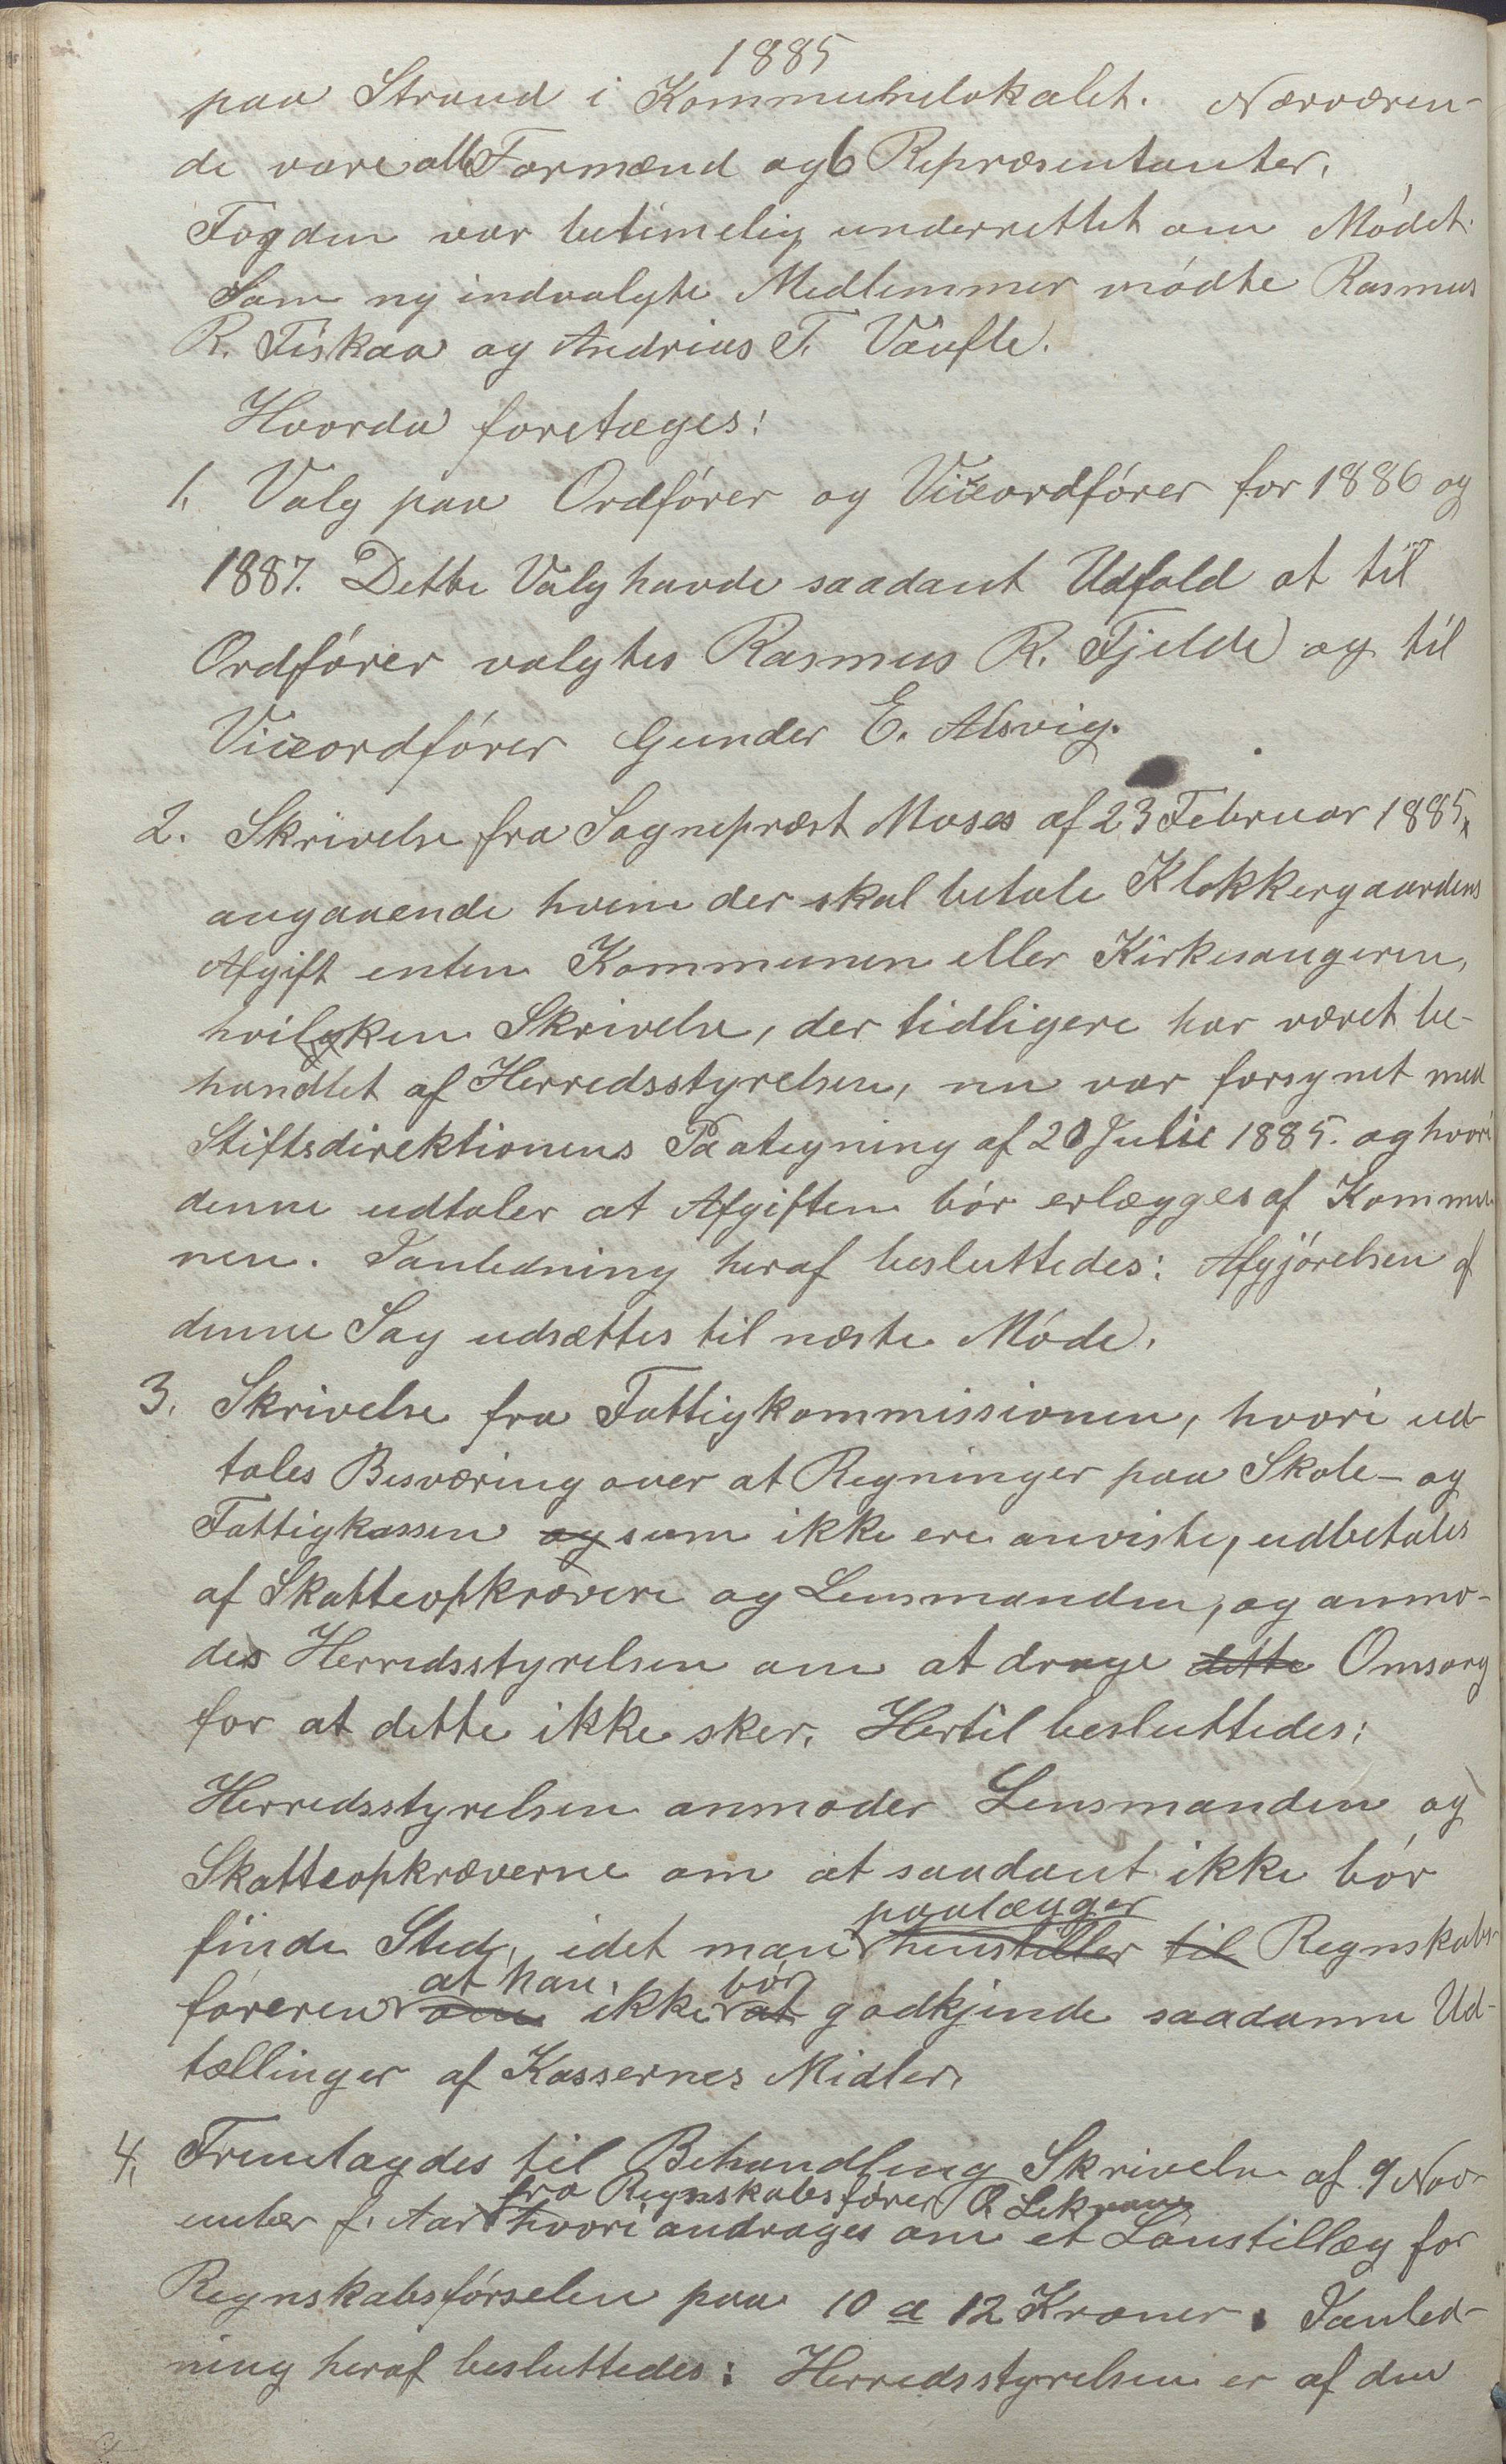 1885
paa Strand i Kommunelokalet. Nærværen-
de vare alle Formænd og 6 Repræsentanter.
Fogden var betimelig underrettet om Mödet.
Som ny indvalgte Medlemmer mödte Rasmus
R. Fiskaa og Andreas T. Vaufle.
Hvorda foretages:
1. Valg paa Ordförer og Viceordförer for 1886 og
1887. Dette Valg havde saadant Udfald at til
Ordförer valgtes Rasmus R. Fjelde og til
Viceordförer Gunder E. Alsvig.
2. Skrivelse fra Sognepræst Moses af 23 Februar 1885,
angaaende hvem der skal betale Klokkergaardens
Afgift enten Kommunen eller Kirkesangeren,
hvilken Skrivelse, der tidligere har været be-
handlet af Herredsstyrelsen, nu var forsynet med
Stiftsdirektionens Paategning af 20 Juli 1885. og hvori
denne udtaler at Afgiften bör erlægges af Kommu-
nen. Ianledning heraf besluttedes: Afgjörelsen af
denne Sag udsættes til næste Möde.
3. Skrivelse fra Fattigkommissionen, hvori ud-
tales Besværing over at Regninger paa Skole- og
Fattigkassen og som ikke ere anviste, udbetales
af Skatteopkrævere og Lensmanden, og anmo-
des Herredsstyrelsen om at drage dette Omsorg
for at dette ikke sker. Hertil besluttedes:
Herredsstyrelsen anmoder Lensmanden og
Skatteopkræverne om at saadant ikke bör
paalægger
finde Sted, idet man henstiller til Regnskabs-
at han bör
föreren om ikke at godkjende saadanne Ud-
tællinger af Kassernes Midler.
4. Fremlagdes til Behandling Skrivelse af 9 Nov-
fra Regnskabsförer O. Lekvam
ember f. Aar hvori andrages om et Lönstillæg for
Regnskabsförselen paa 10 a 12 Kroner. Ianled-
ning heraf besluttedes: Herredsstyrelsen er af den